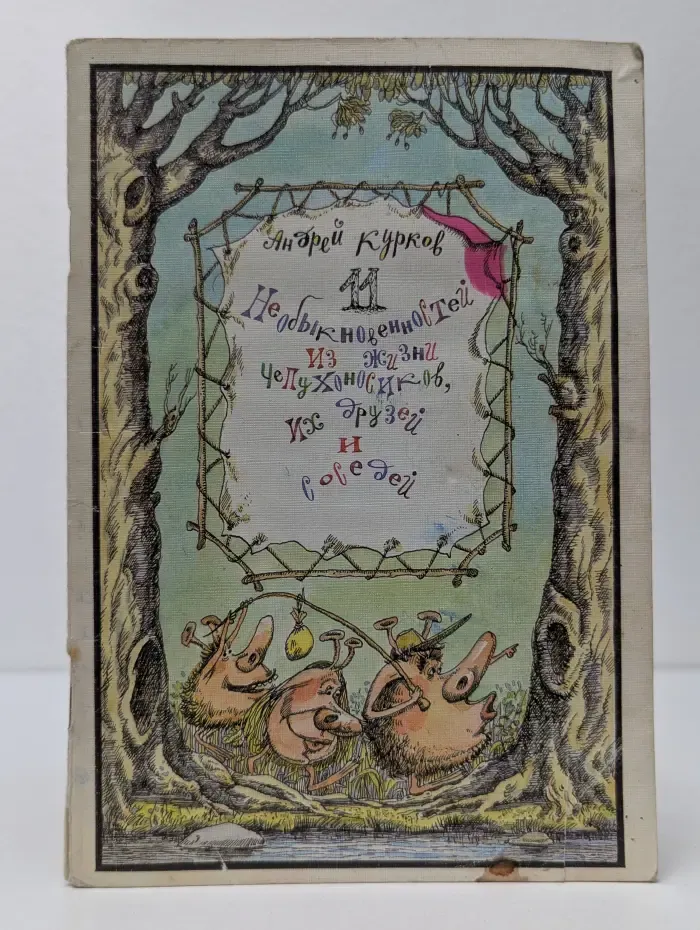 Андрей Курков
11
Необыкновенностей
Из жизни
Чепухоносиков,
их друзей
и
соседей